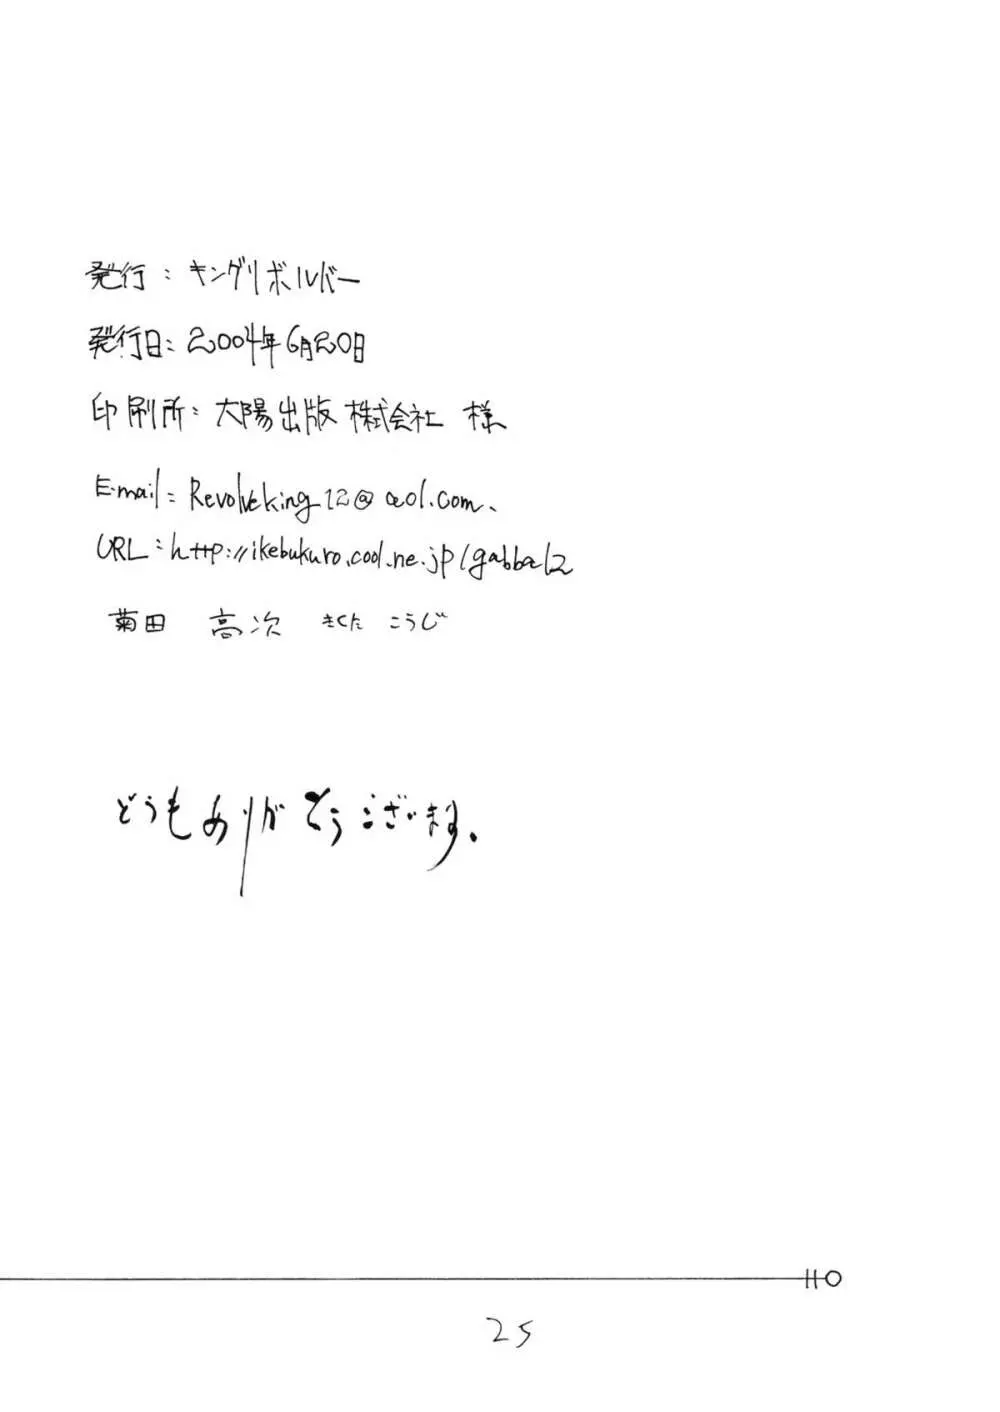 発行：キングリボルバー
発行日：2004年6月20日
印刷所：大陽出版株式会社 様
E-mail：Revolveking12@aol.com、
URL：http://ikebukuro.cool.ne.jp/gabba12
菊田 高次 きくた こうじ
どうもありがとうございます。
25